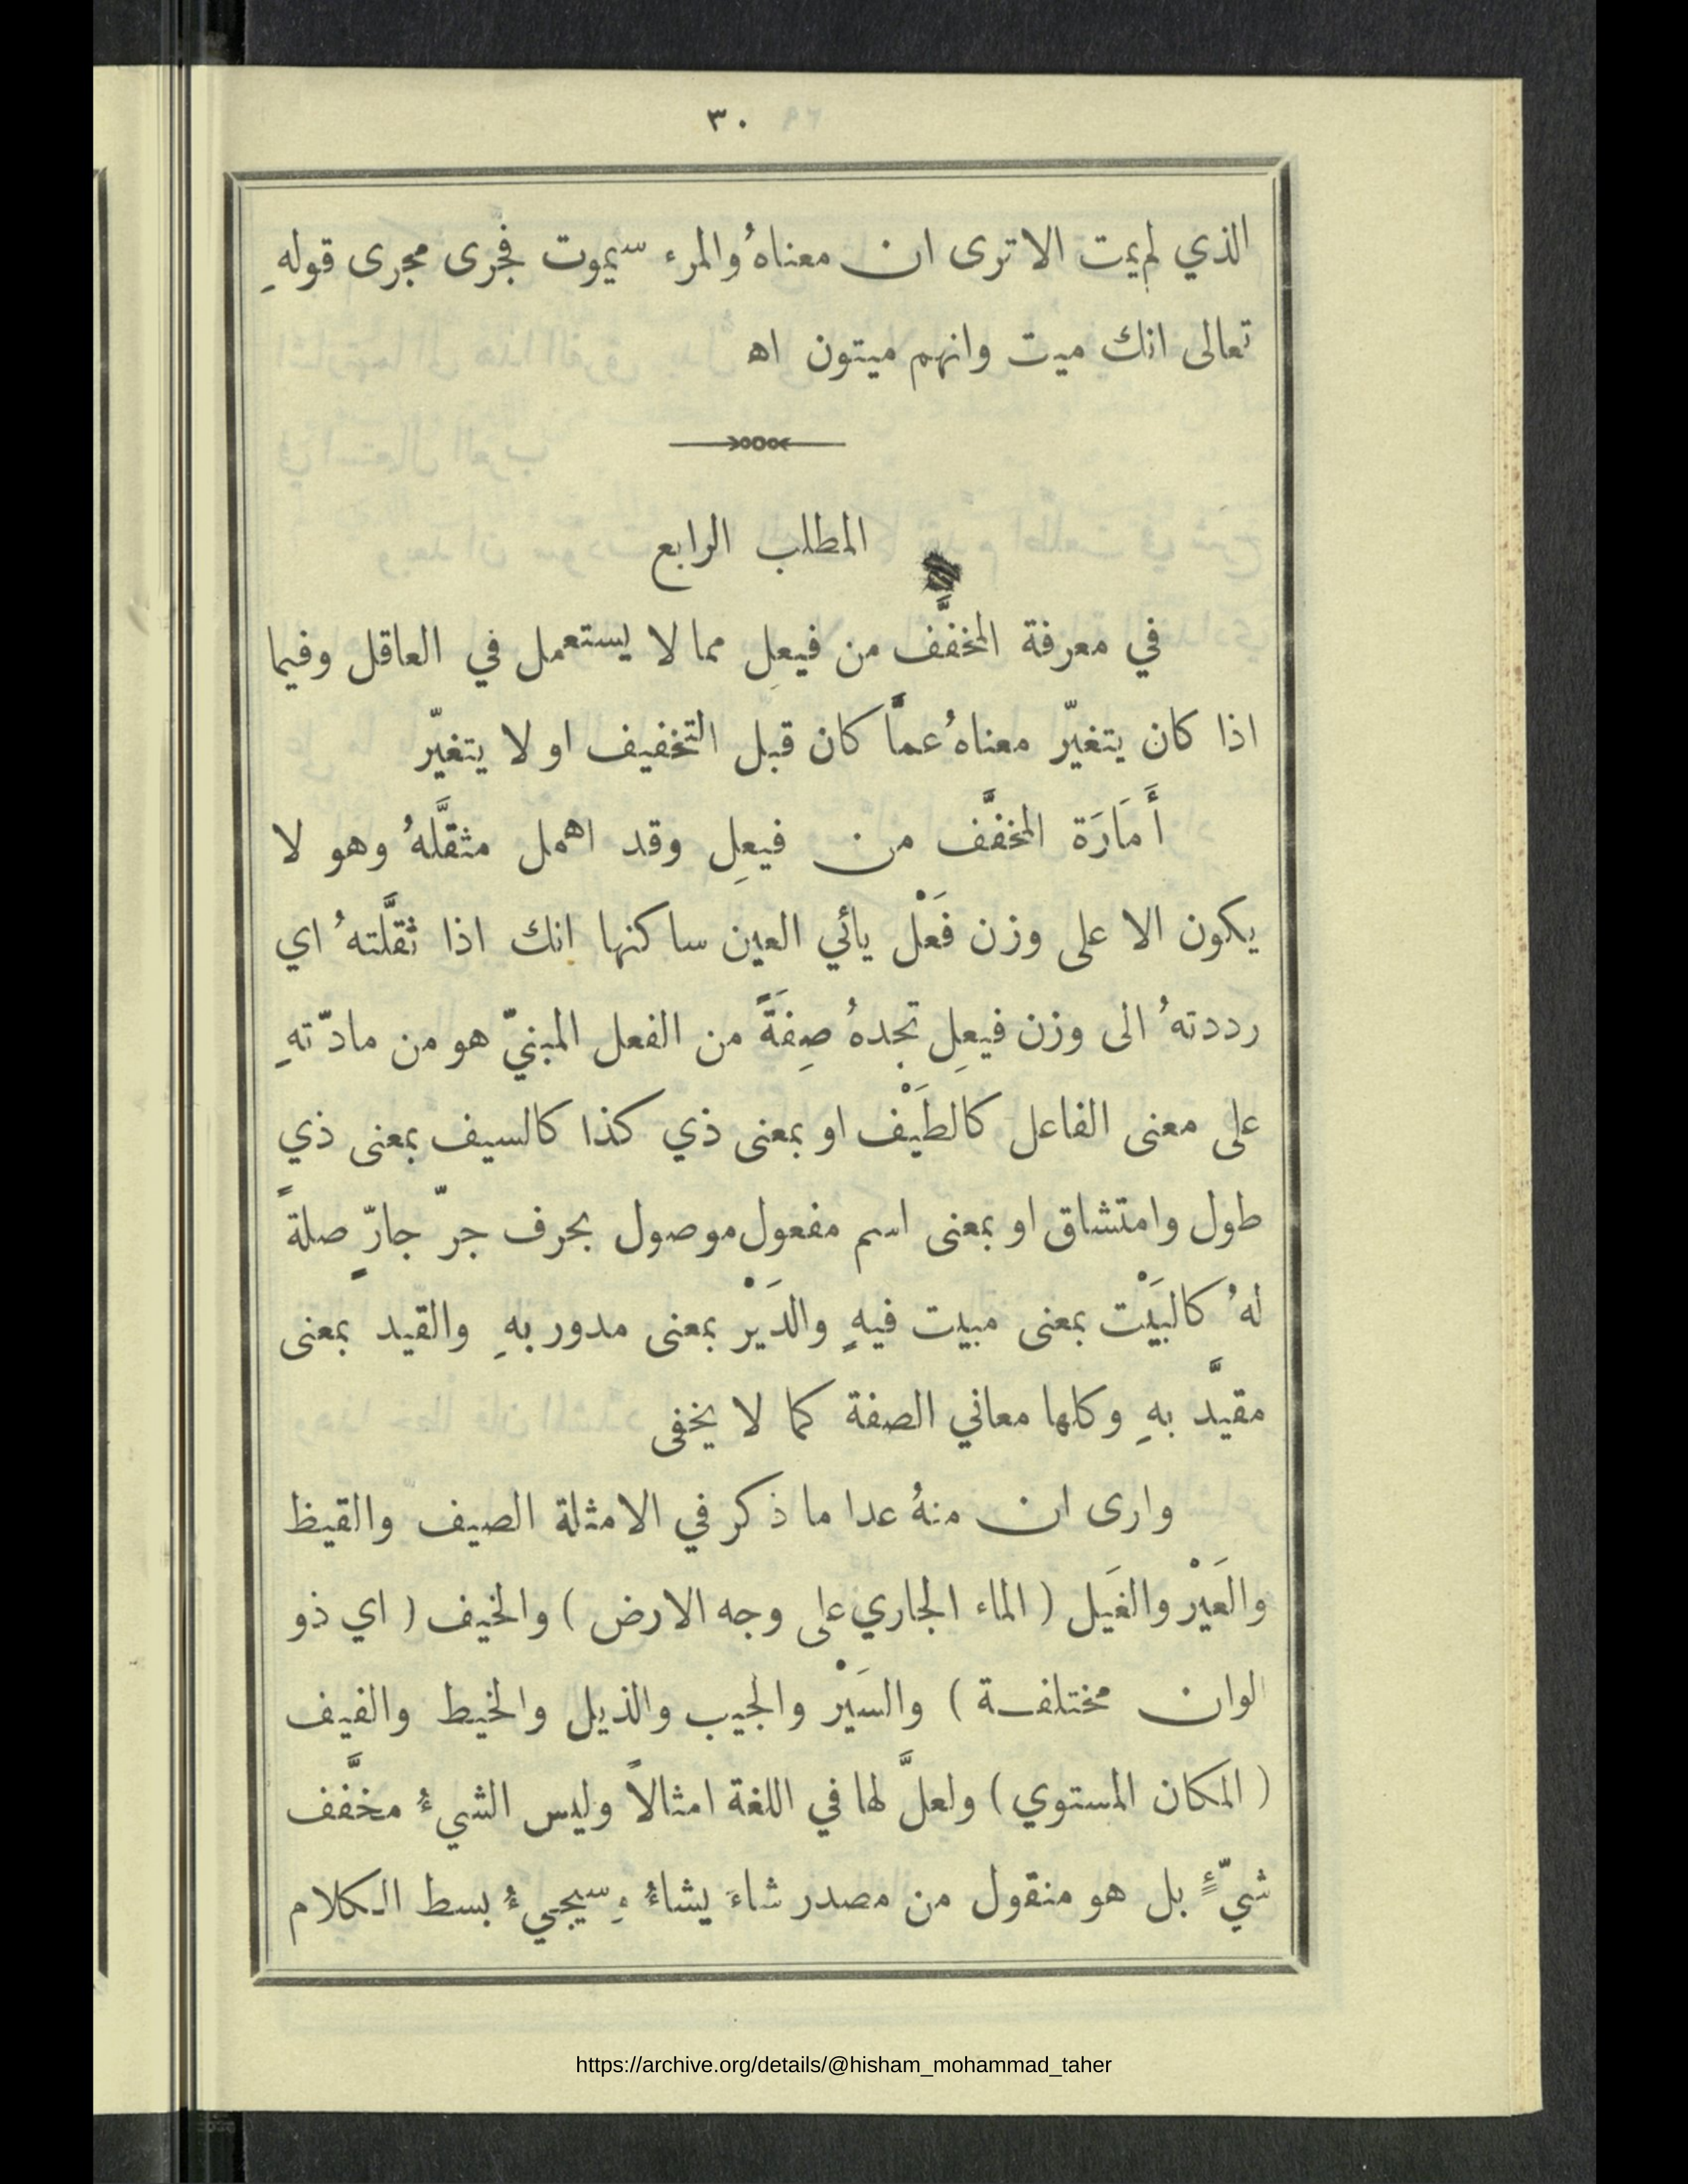 ٣٠
الذي لم يمت الا ترى ان معناهُ والمرء سيموت فجرى مجرى قولهِ
تعالى انك ميت وانهم ميتون اه
المطلب الرابع
في معرفة المخفَّف من فيعِل مما لا يستعمل في العاقل وفيما
اذا كان يتغيّر معناهُ عمَّا كان قبل التخفيف او لا يتغيّر
أَمَارَة المخفَّف من فيعِل وقد اهمل مثقَّلهُ وهو لا
يكون الا على وزن فَعْل يائي العين ساكنها انك اذا ثقَّلتهُ اي
رددتهُ الى وزن فيعِل تجدهُ صِفَةً من الفعل المبنيّ هو من مادّتهِ
على معنى الفاعل كالطَيْف او بمعنى ذي كذا كالسيف بمعنى ذي
طول وامتشاق او بمعنى اسم مفعول موصول بحرف جرّ جارٍّ صلةً
لهُ كالبَيْت بمعنى مبيت فيهِ والدَيْر بمعنى مدور بهِ والقيد بمعنى
مقيَّد بهِ وكلها معاني الصفة كما لا يخفى
وارى ان منهُ عدا ما ذكر في الامثلة الصيف والقيظ
والعَيْر والغَيل ( الماء الجاري على وجه الارض ) والخيف ( اي ذو
الوان مختلفة ) والسَيْر والجيب والذيل والخيط والفيف
( المكان المستوي ) ولعلَّ لها في اللغة امثالاً وليس الشيءُ مخفَّف
شيّءٍ بل هو منقول من مصدر شاءَ يشاءُ وسيجيءُ بسط الكلام
https://archive.org/details/@hisham_mohammad_taher